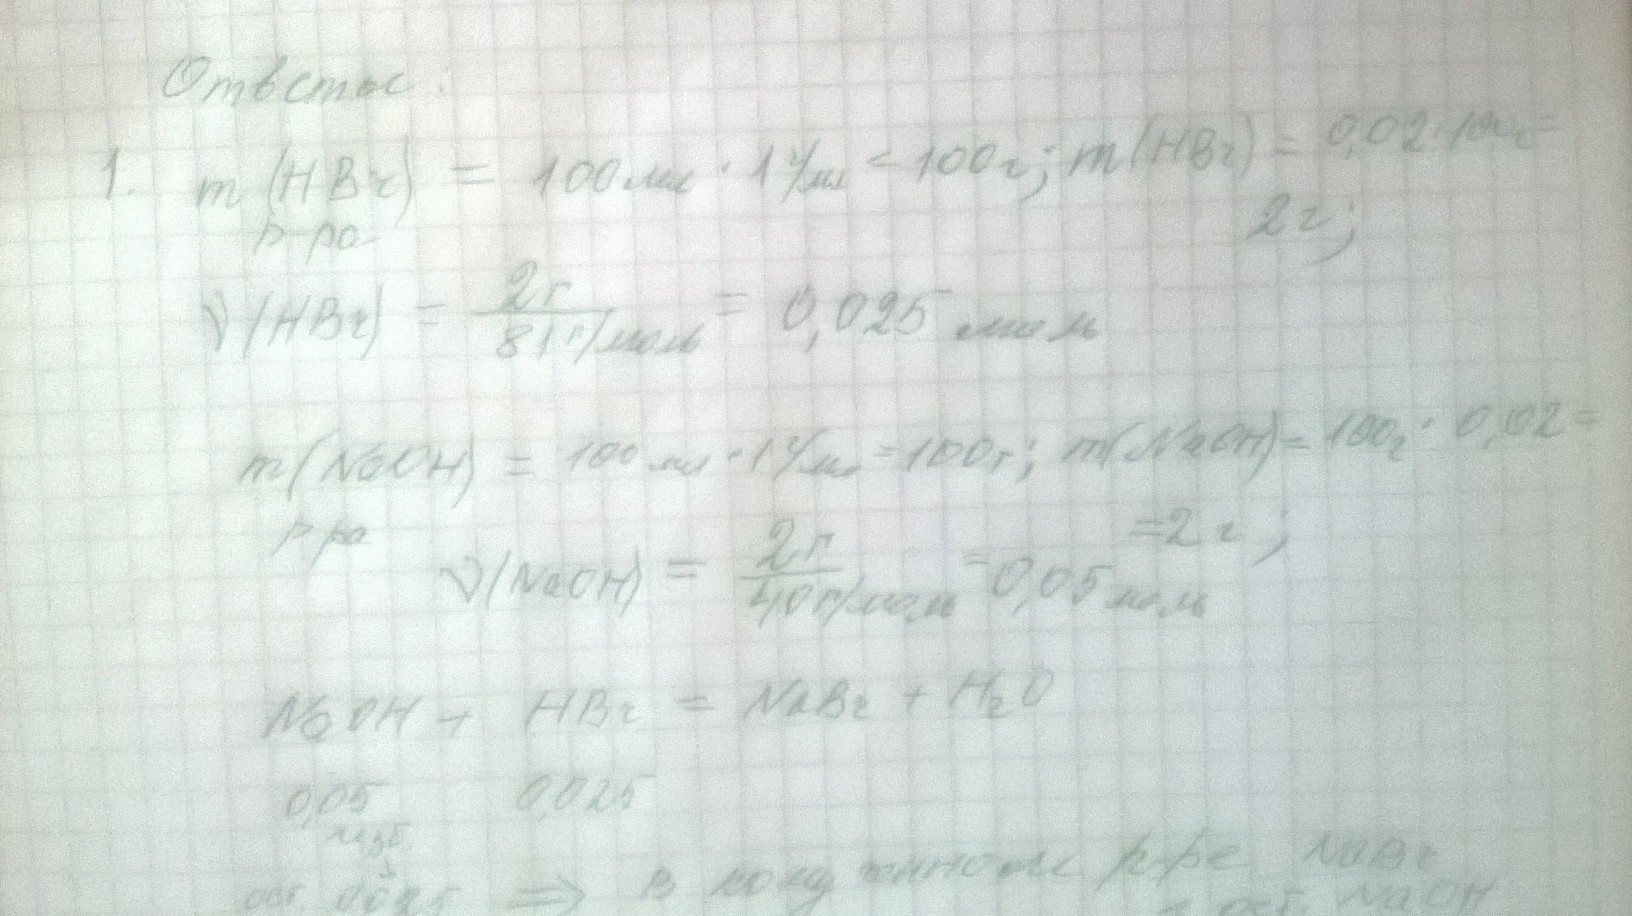 Ответы:
1. m (HBr) = 100 мл · 1 г/мл = 100 г; m (HBr) = 0,02 · 100 г =
р-ра 2 г;
ν (HBr) = 2 г / 81 г/моль = 0,025 моль
m (NaOH) = 100 мл · 1 г/мл = 100 г; m (NaOH) = 100 г · 0,02 =
р-ра = 2 г;
ν (NaOH) = 2 г / 40 г/моль = 0,05 моль
NaOH + HBr = NaBr + H₂O
0,05 0,025
изб.
ост. 0,025 ⇒ в полученном р-ре NaBr
ост. NaOH